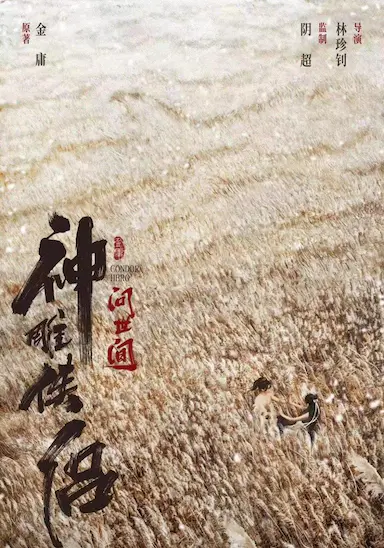 导演
林珍钊
监制
阴超
原著
金庸
神雕侠侣
CONDOR
HERO
问世间